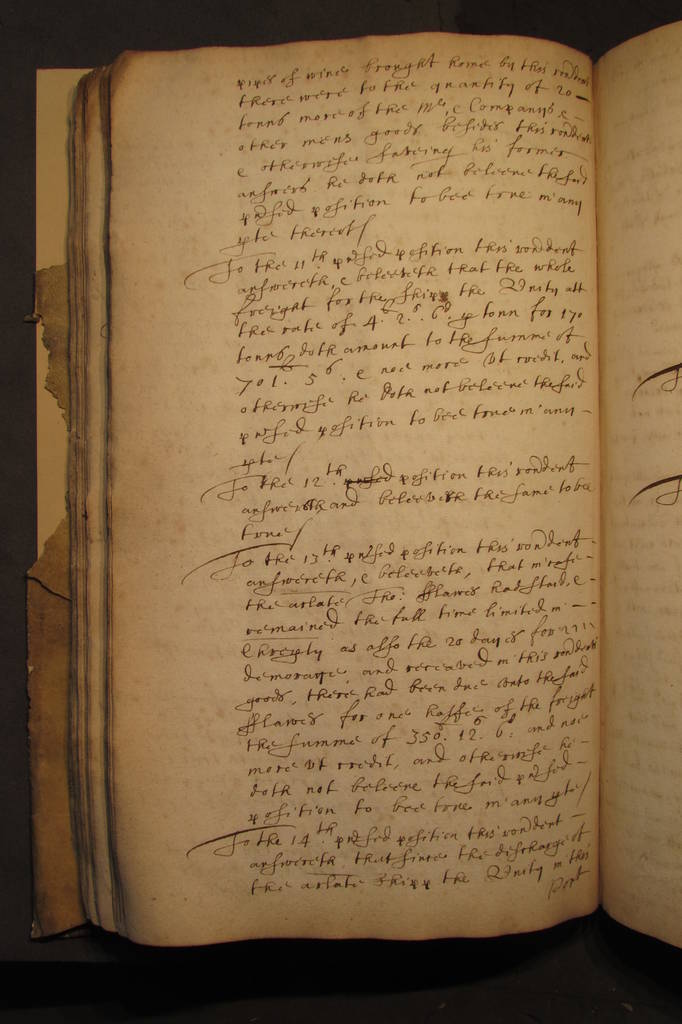 pipes of wines brought home by this rendent
there were to the quantity of 20 —
tonns more of the Mrs, e Companys e —
other mens goods besides this rendents
e otherwise saveing his former
answers he doth not beleeve the said
prdsed position to bee true in any
pte thereof /
To the 11th prdsed position this rendent
answereth, e beleeveth that the whole
freight for the shipp the Unity att
the rate of 4l. 2s. 6d. p tonn for 170
tonns doth amount to the summe of
701l. 5s. e noe more vt credit, and
otherwise he doth not beleeve the said
prdsed position to bee true in any —
pte /
To the 12th position this rendent
answereth, and beleeveth the same to bee
true /
To the 13th prdsed position this rendent —
answereth, e beleeveth, that in case —
the arlate Tho: fflawes had staid, e —
remained the full time limited in — —
as also the 20 dayes for
demorage, and receaved in this rendents
goods, there had been due unto the said
fflawes for one halfe of the freight
the summe of 350l. 12s. 6d. and noe
more vt credit, and otherwise he —
doth not beleeve the said prdsed —
position to bee true in any pte /
To the 14th prdsed position this rendent —
answereth that since the discharge of
the arlate shipp the Unity in this
Port